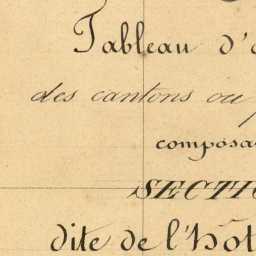 Tableau d'
des cantons ou
composa
SECTIO
dite de l'hôt